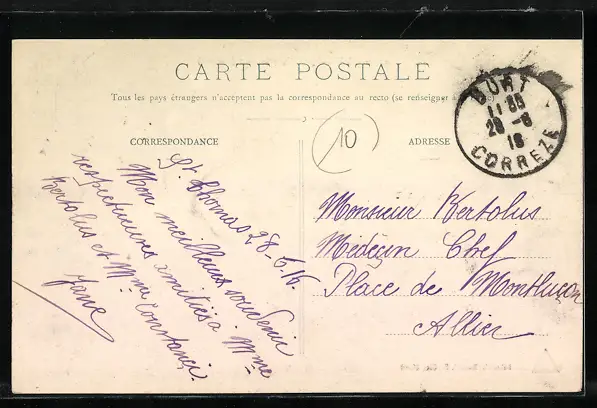 CARTE POSTALE
Tous les pays étrangers n'acceptent pas la correspondance au recto (se renseigner
CORRESPONDANCE
ADRESSE
10
BORT
11 35
28-6
16
CORREZE
St Thomas 28-6.16.
Mon meilleur souvenir
respectueuses amitiés à Mme
Bertolus et Mme Constanci.
Jane
Monsieur Bertolus
Médecin Chef
Place de Montluçon
Allier